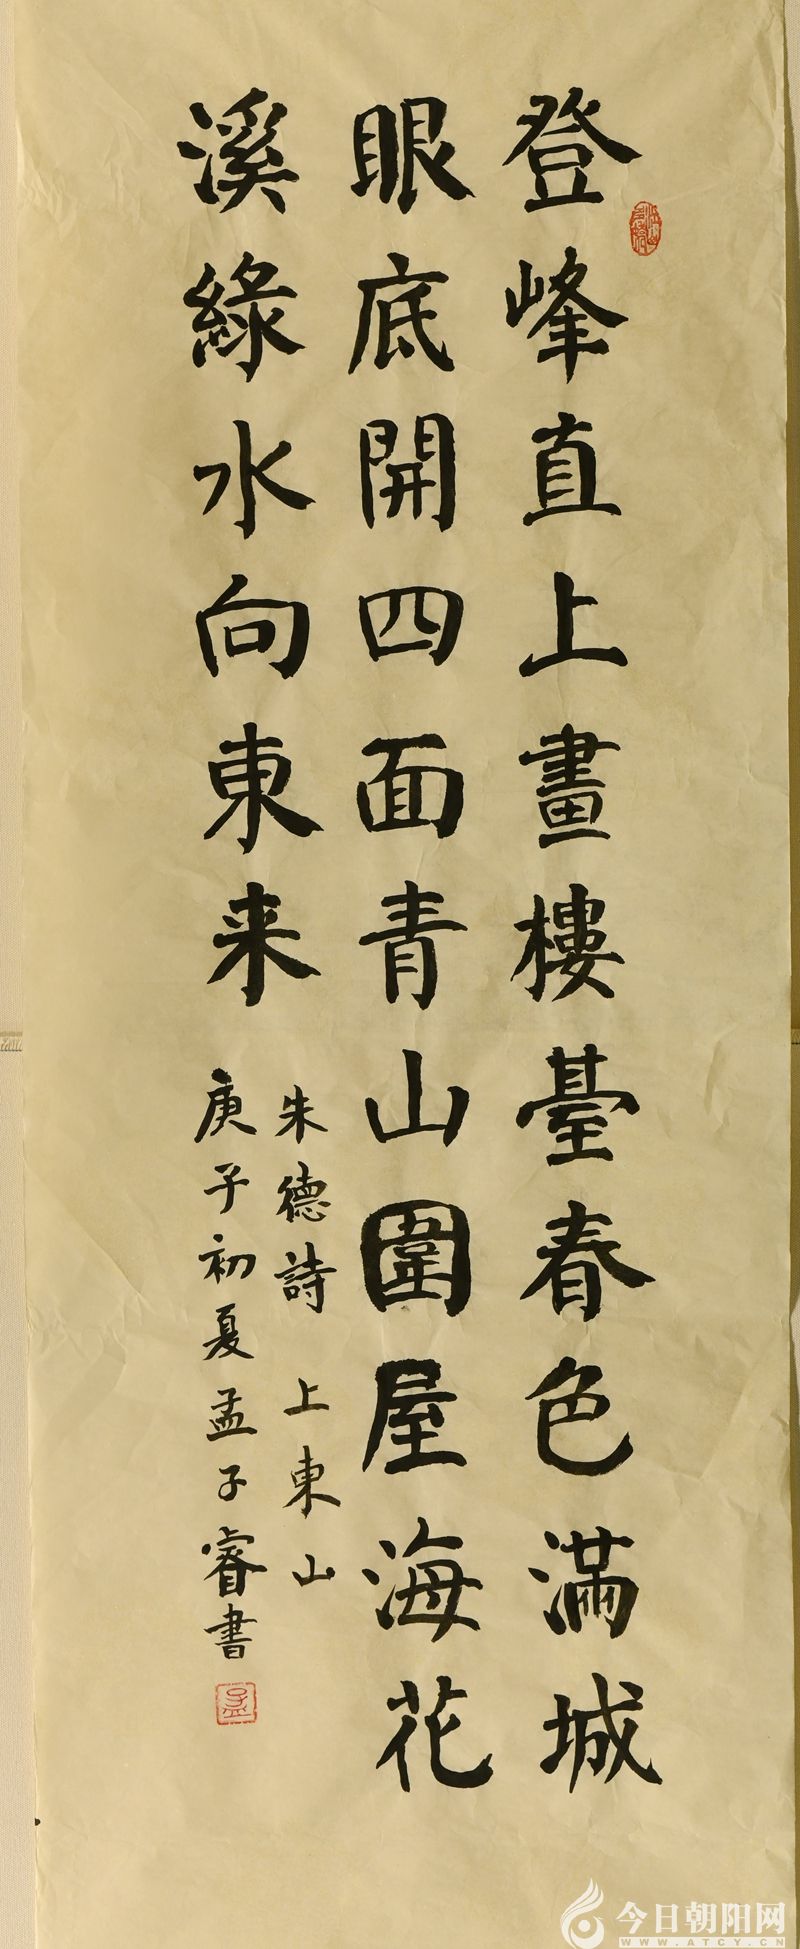 登峰直上畫樓臺春色滿城
眼底開四面青山圍屋海花
溪綠水向東来
朱德詩 上東山
庚子初夏孟子睿書
孟
今日朝阳网
WWW.ATCY.CN